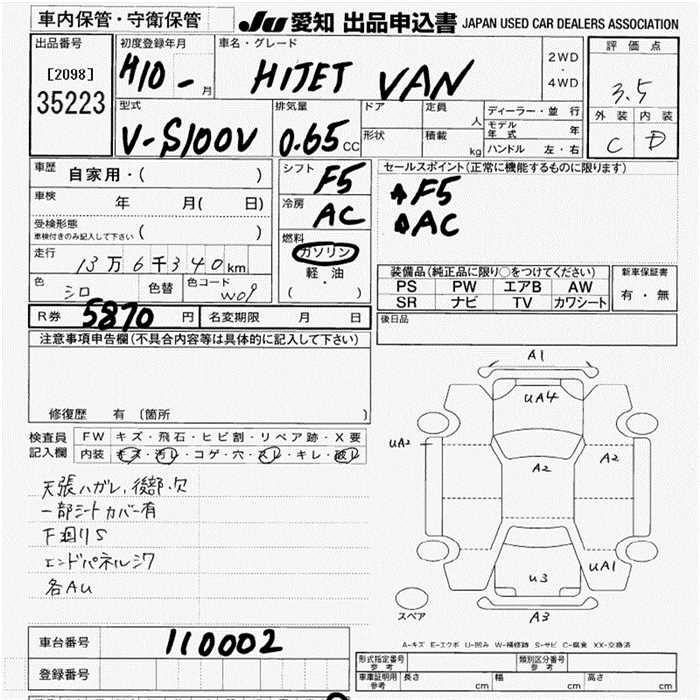 車内保管・守衛保管
JU 愛知 出品申込書 JAPAN USED CAR DEALERS ASSOCIATION
出品番号
[2098]
35223
初度登録年月
H10 - 月
車名・グレード
HIJET VAN
2WD
・
4WD
評価点
3.5
外装 内装
C D
型式
V-S100V
排気量
0.65 CC
ドア
形状
定員
人
積載
kg
ディーラー・並行
モデル年式 年
ハンドル 左・右
車歴
自家用・( )
車検
年 月( 日)
受検形態
車検付きのみ記入して下さい ( )
走行
13万6千340km
色
シロ
色替
色コード
W09
シフト
F5
冷房
AC
燃料
ガソリン
・
軽油
・
( )
セールスポイント(正常に機能するものに限ります)
F5
AC
装備品(純正品に限り○をつけてください)
PS PW エアB AW
SR ナビ TV カワシート
新車保証書
有・無
R券 5870 円
名変期限 月 日
後日品
注意事項申告欄(不具合内容等は具体的に記入して下さい)
修復歴 有 〔箇所 〕
検査員記入欄
FW キズ・飛石・ヒビ割・リペア跡・X要
内装 キズ・汚レ・コゲ・穴・スレ・キレ・破レ
天張ハガレ、後部欠
一部シートカバー有
下廻りS
エンドパネルシワ
各AU
A1
UA4
UA2
A2
A2
UA1
U3
A3
スペア
A-キズ E-エクボ U-凹み W-補修跡 S-サビ C-腐食 XX-交換済
車台番号
110002
登録番号
形式指定番号
参考
類別区分番号
参考
車庫証明用
参考
長さ cm
幅 cm
高さ cm